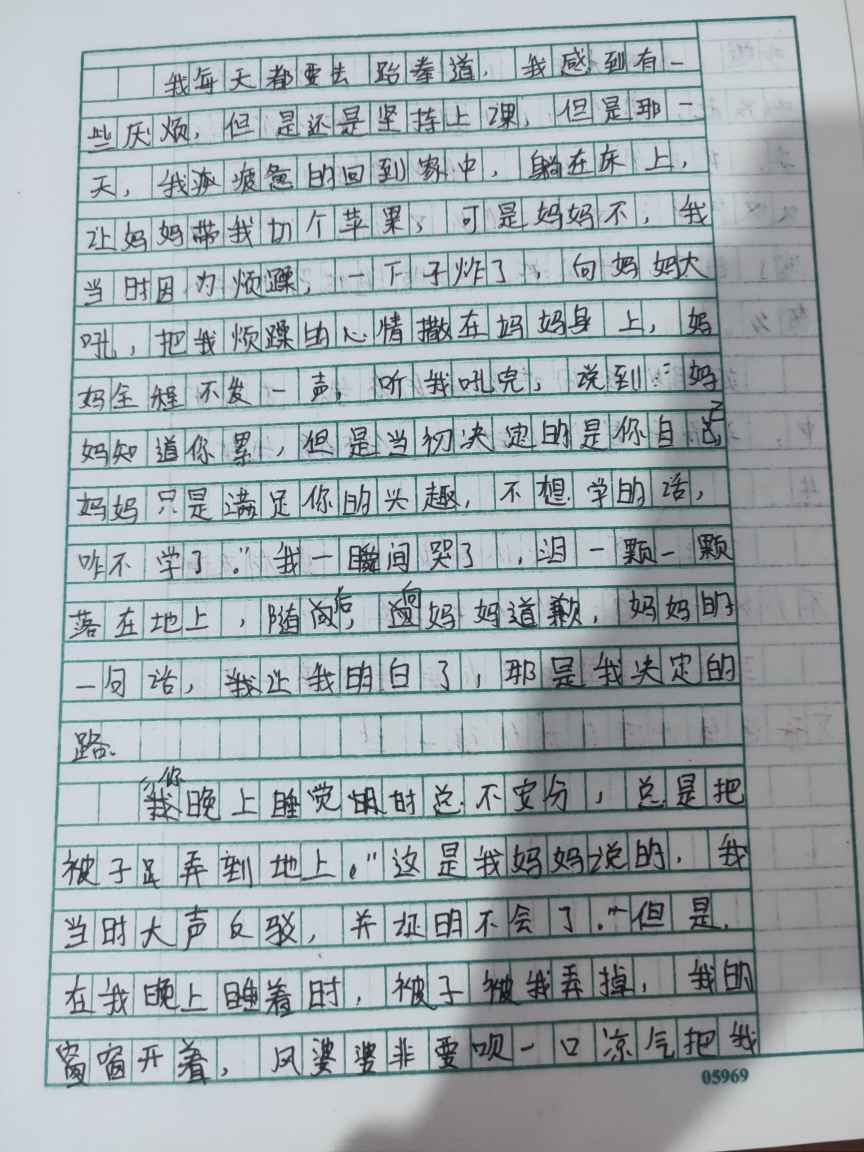 我每天都要去跆拳道，我感到有一
些厌烦，但是还是坚持上课，但是那一
天，我疲惫的回到家中，躺在床上，
让妈妈带我切个苹果，可是妈妈不，我
当时因为烦躁，一下子炸了，向妈妈大
吼，把我烦躁的心情撒在妈妈身上，妈
妈全程不发一声，听我吼完，说到：“妈
妈知道你累，但是当初决定的是你自己
妈妈只是满足你的兴趣，不想学的话，
咋不学了。”我一瞬间哭了，泪一颗一颗
落在地上，随后，向妈妈道歉，妈妈的
一句话，我让我明白了，那是我决定的
路。
“你晚上睡觉时总不安分，总是把
被子弄到地上。”这是我妈妈说的，我
当时大声反驳，并证明不会了。“但是
在我晚上睡着时，被子被我弄掉，我的
窗开着，风婆婆非要呗一口凉气把我
05969